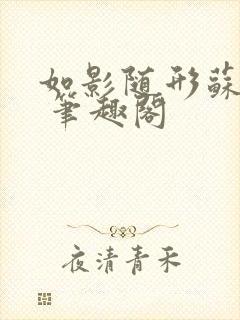 如影随形蘇
笔趣阁
夜清青禾